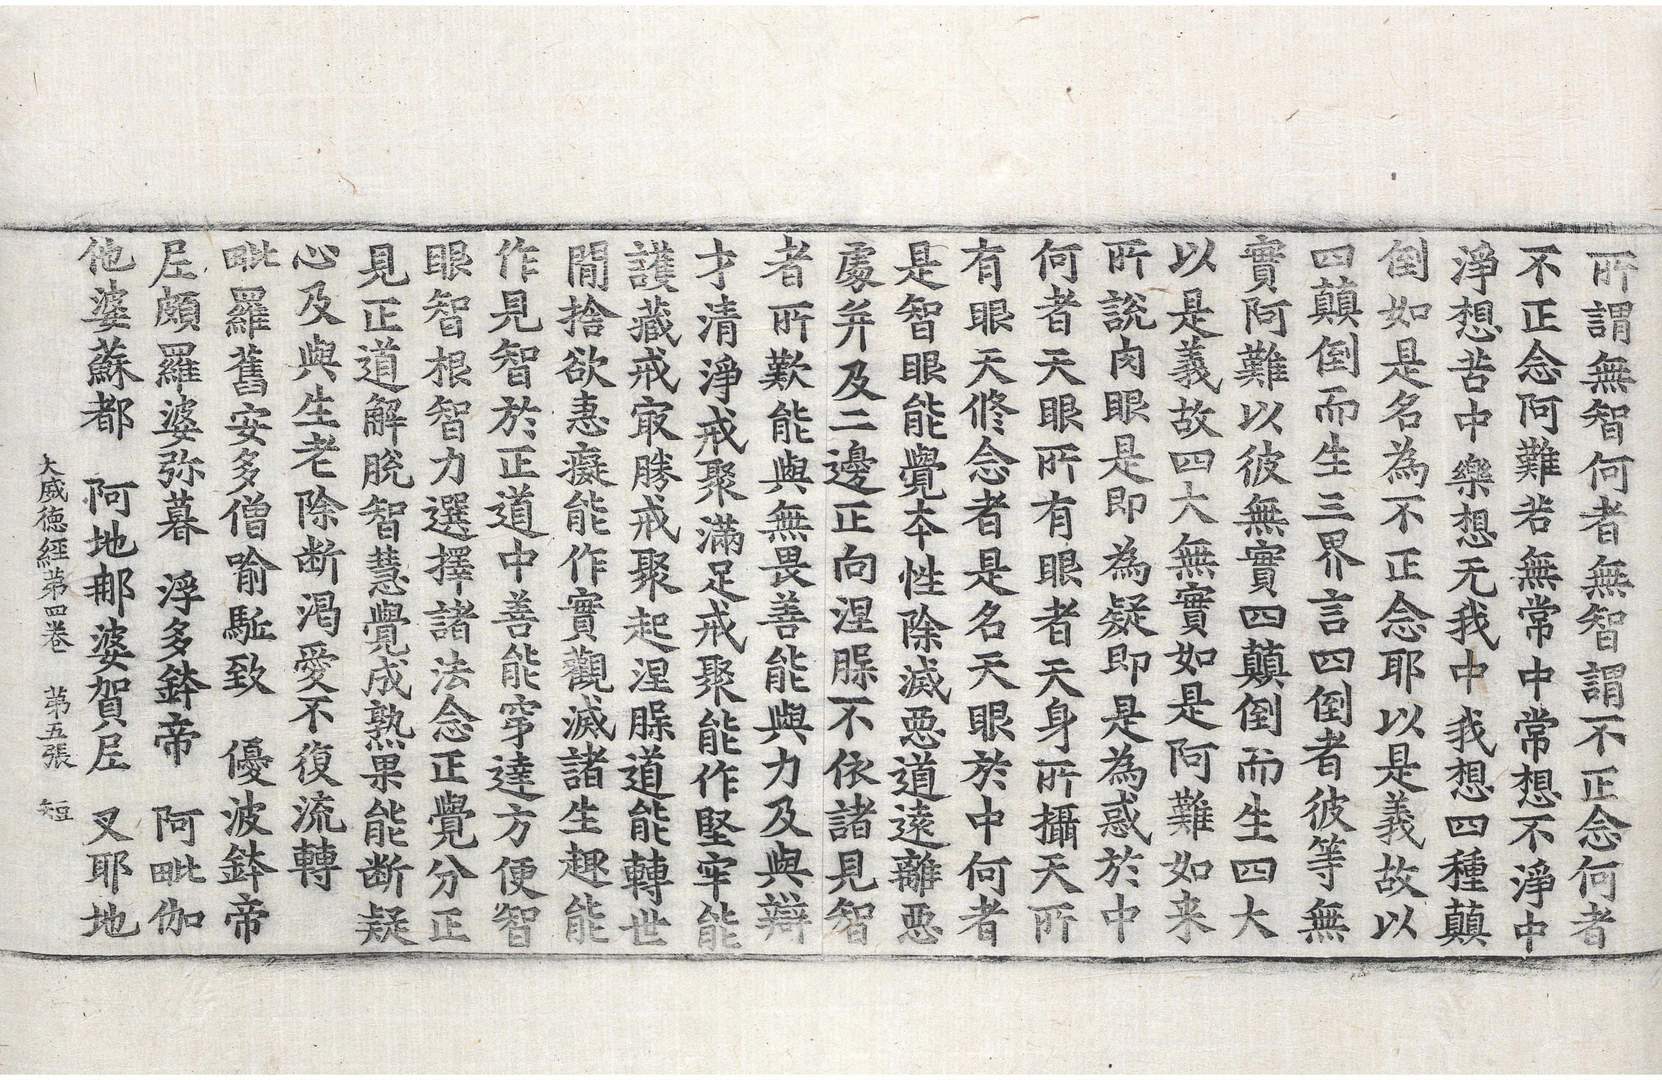 所謂無智何者無智謂不正念何者
不正念阿難若無常中常想不淨中
淨想苦中樂想无我中我想四種顛
倒如是名為不正念耶以是義故以
四顛倒而生三界言四倒者彼等無
實阿難以彼無實四顛倒而生四大
以是義故四大無實如是阿難如来
所說肉眼是即為疑即是為惑於中
何者天眼所有眼者天身所攝天所
有眼天脩念者是名天眼於中何者
是智眼能覺本性除滅惡道遠離惡
處并及二邊正向涅槃不依諸見智
者所歎能與無畏善能與力及與辯
才清淨戒聚滿足戒聚能作堅牢能
護藏戒㝡勝戒聚起涅槃道能轉世
間捨欲恚癡能作實觀滅諸生趣能
作見智於正道中善能穿達方便智
眼智根智力選擇諸法念正覺分正
見正道解脫智慧覺成熟果能断疑
心及與生老除断渴愛不復流轉
毗羅舊安多僧喻駈致　優波鉢帝
𡰱頗羅婆弥暮　浮多鉢帝　阿毗伽
他婆蘇都　阿地那婆賀𡰱　叉耶地
大威徳經第四卷　第五張　短